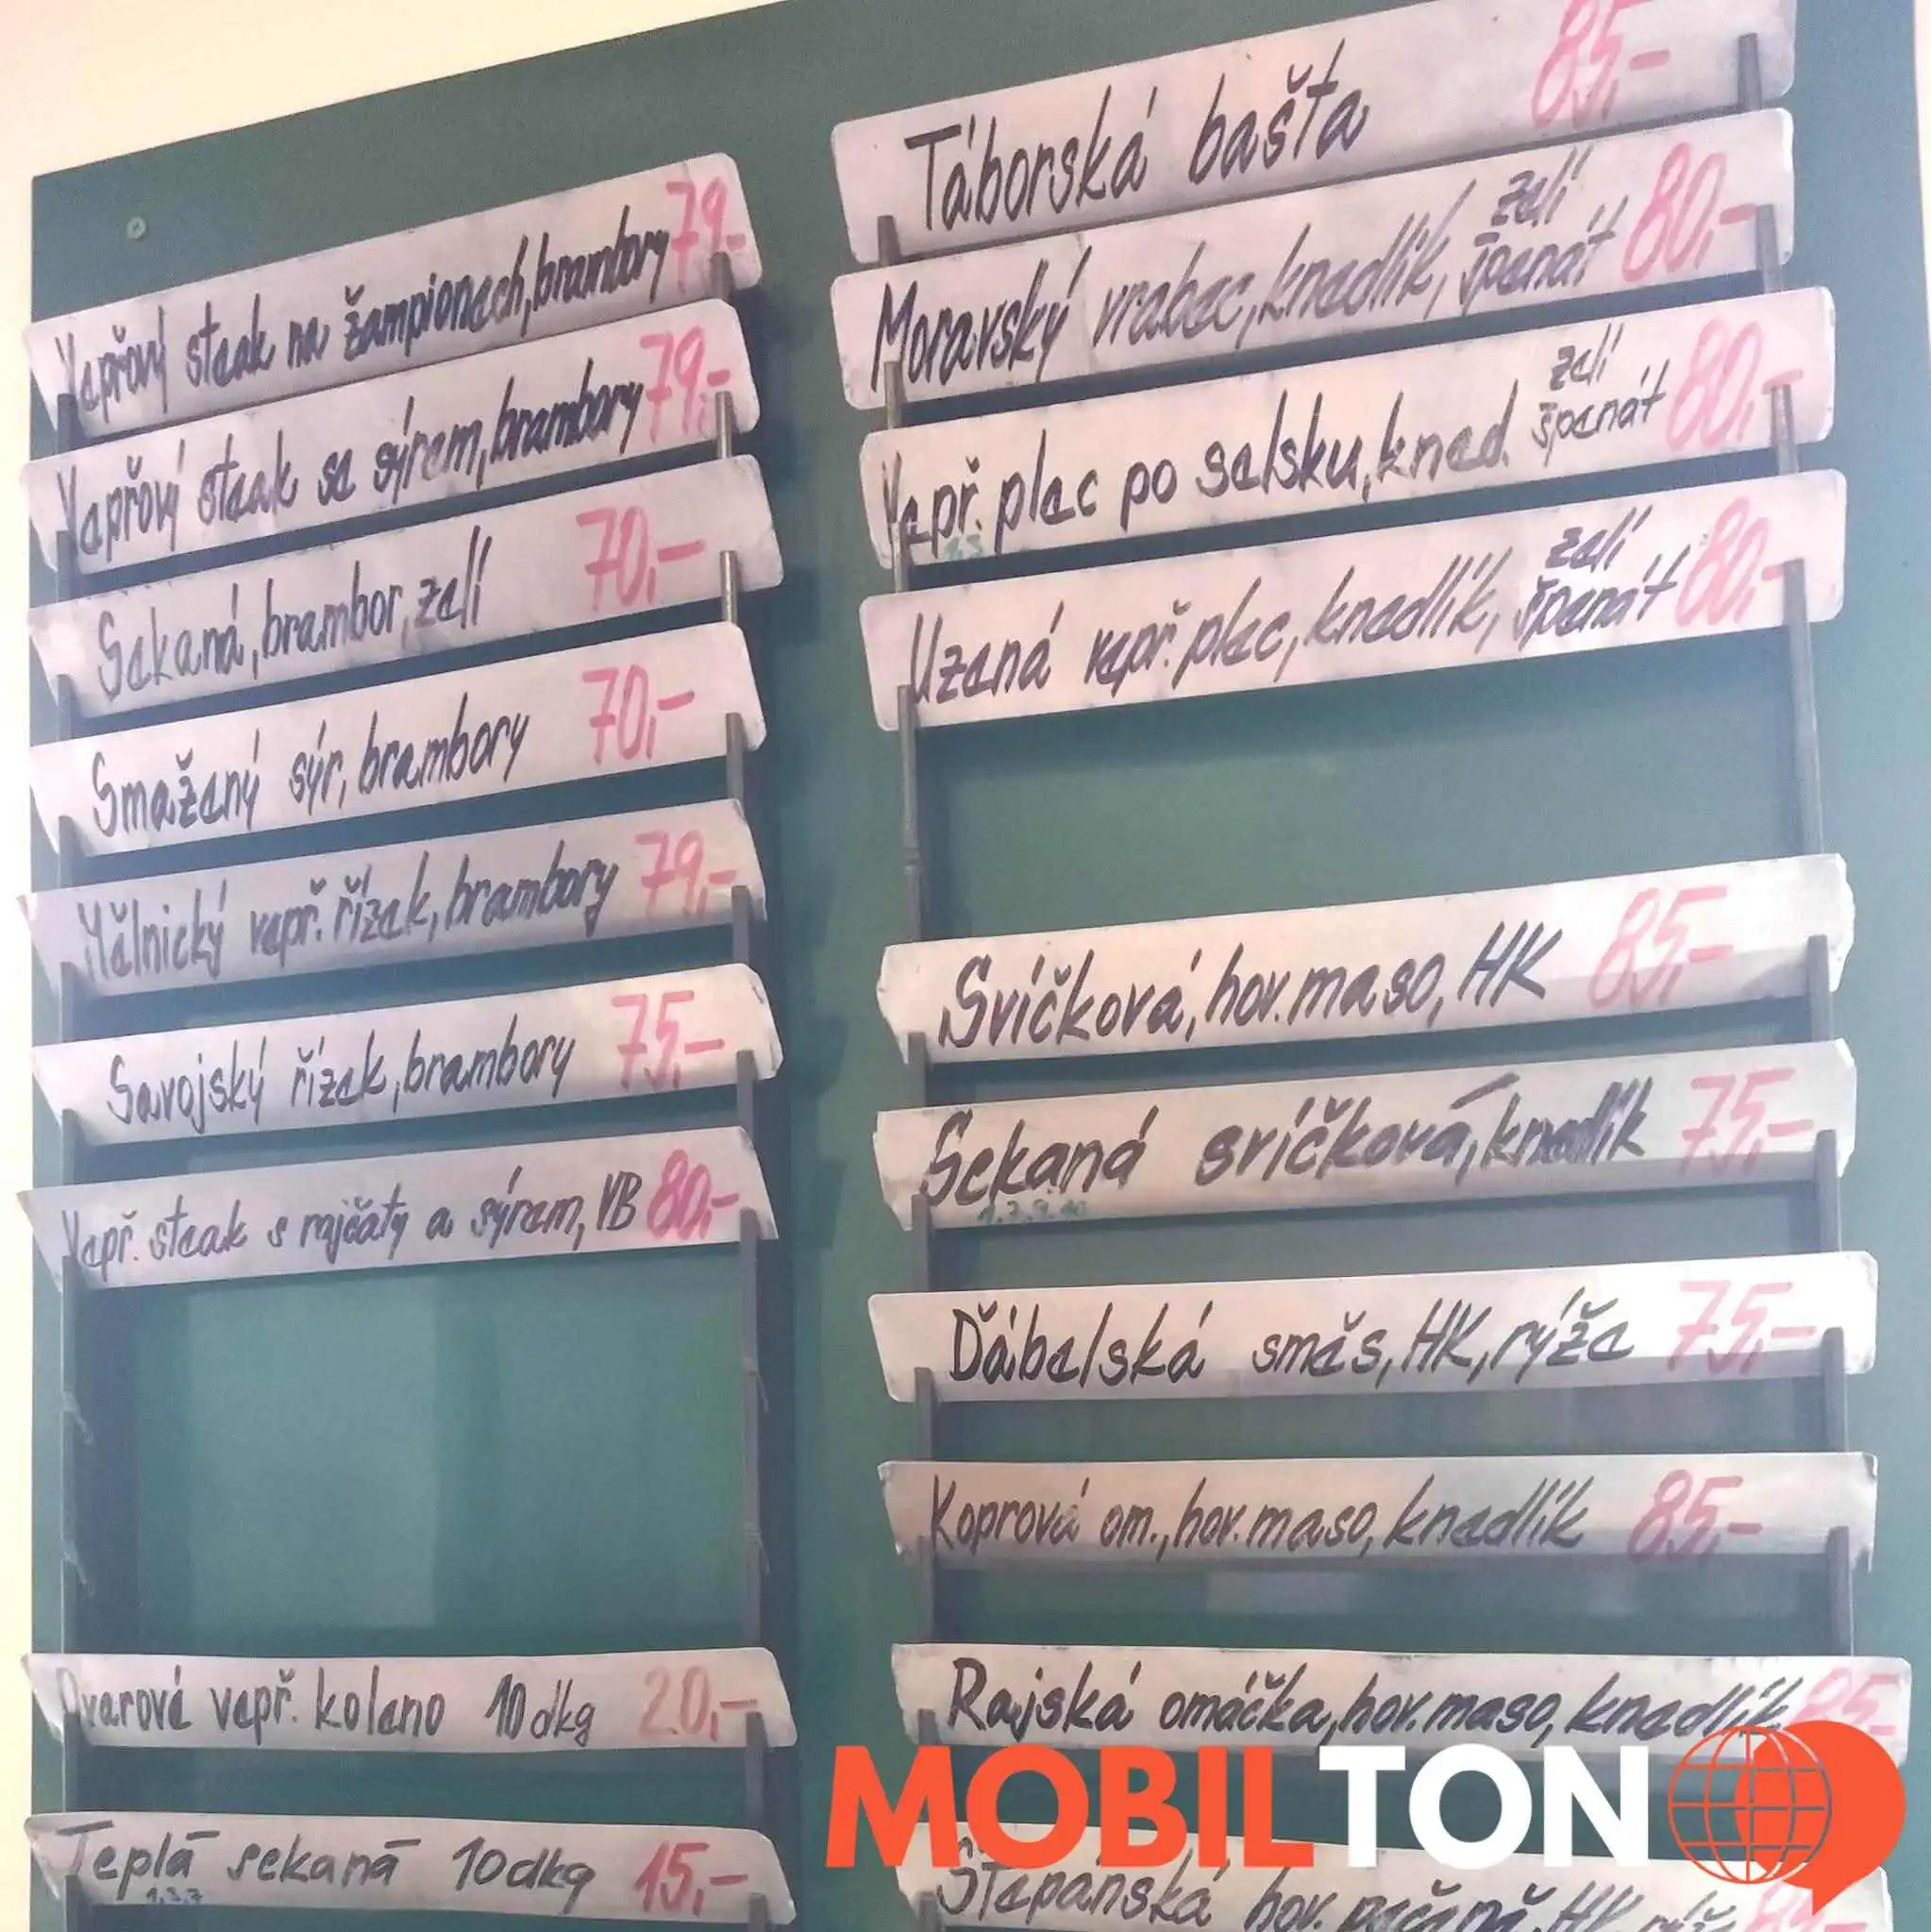 Vepřový steak na žampionech, brambory 79,-
Vepřový steak se sýrem, brambory 79,-
Sekaná, brambor, zelí 70,-
Smažený sýr, brambory 70,-
Mělnický vepř. řízek, brambory 79,-
Savojský řízek, brambory 75,-
Vepř. steak s rajčaty a sýrem, VB 80,-
Ovarové vepř. koleno 10dkg 20,-
Teplá sekaná 10dkg 15,-
1,3,7
Táborská bašta 85,-
Moravský vrabec, knedlík, zelí špenát 80,-
Vepř. plec po selsku, kned. zelí špenát 80,-
1,3
Uzená vepř. plec, knedlík, zelí špenát 80,-
Svíčková, hov. maso, HK 85,-
Sekaná svíčková, knedlík 75,-
1,7,9,10
Ďábelská směs, HK, rýže 75,-
Koprová om., hov. maso, knedlík 85,-
Rajská omáčka, hov. maso, knedlík 85,-
MOBILTON
Štěpánská hov. pečeně, HK, rýže